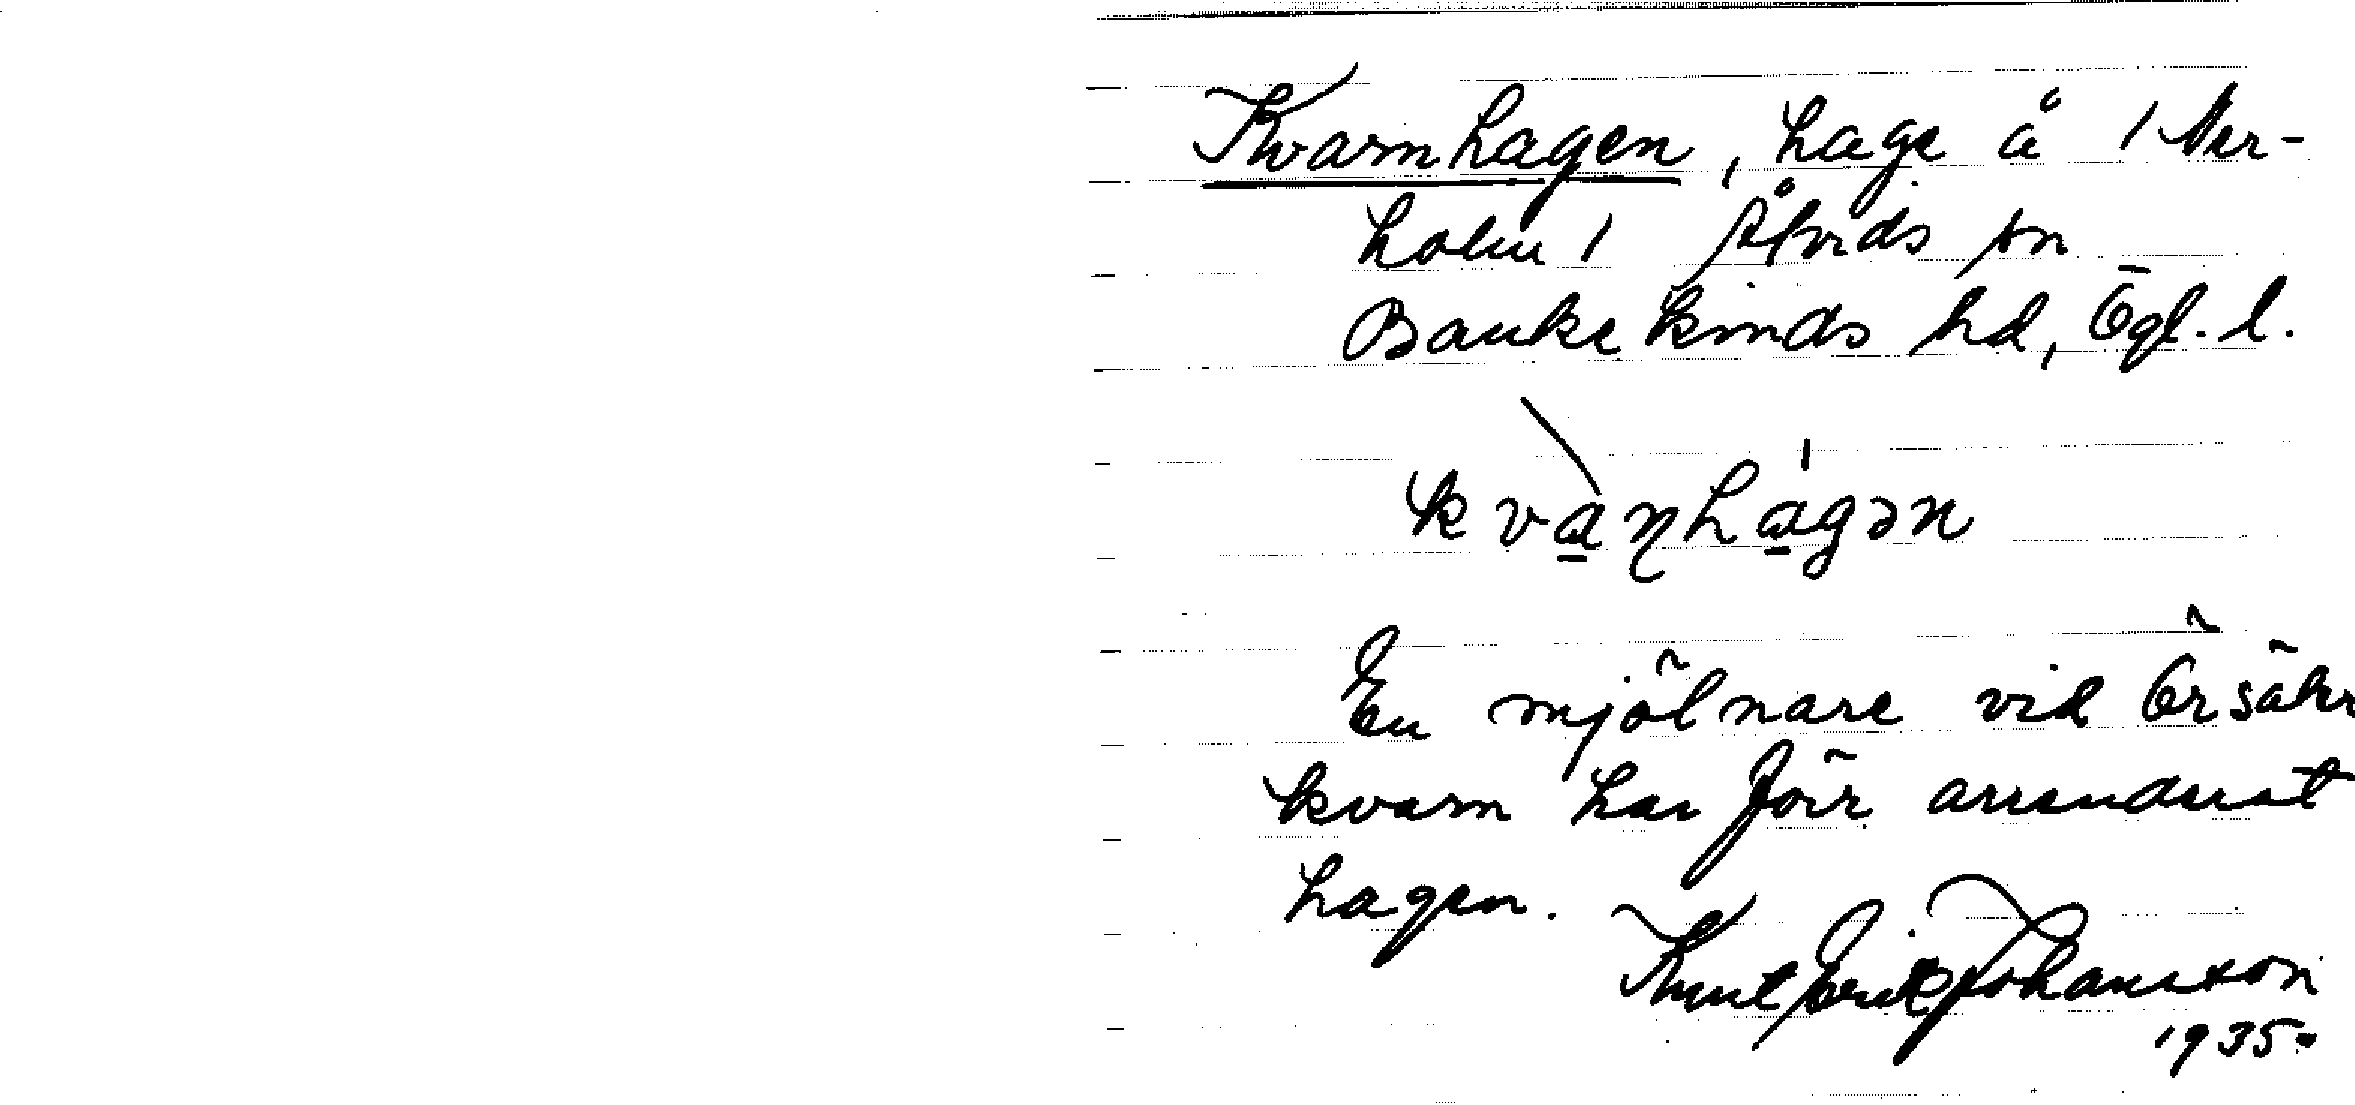 Kvarnhagen, hage å 1 Ner-
holm 1 Åtvids sn
Bankekinds hd, Ögl. l.
kvànhágən
En mjölnare vid Örsäter
kvarn har förr arrenderat
hagen.
Knut Erik Johansson
1935.